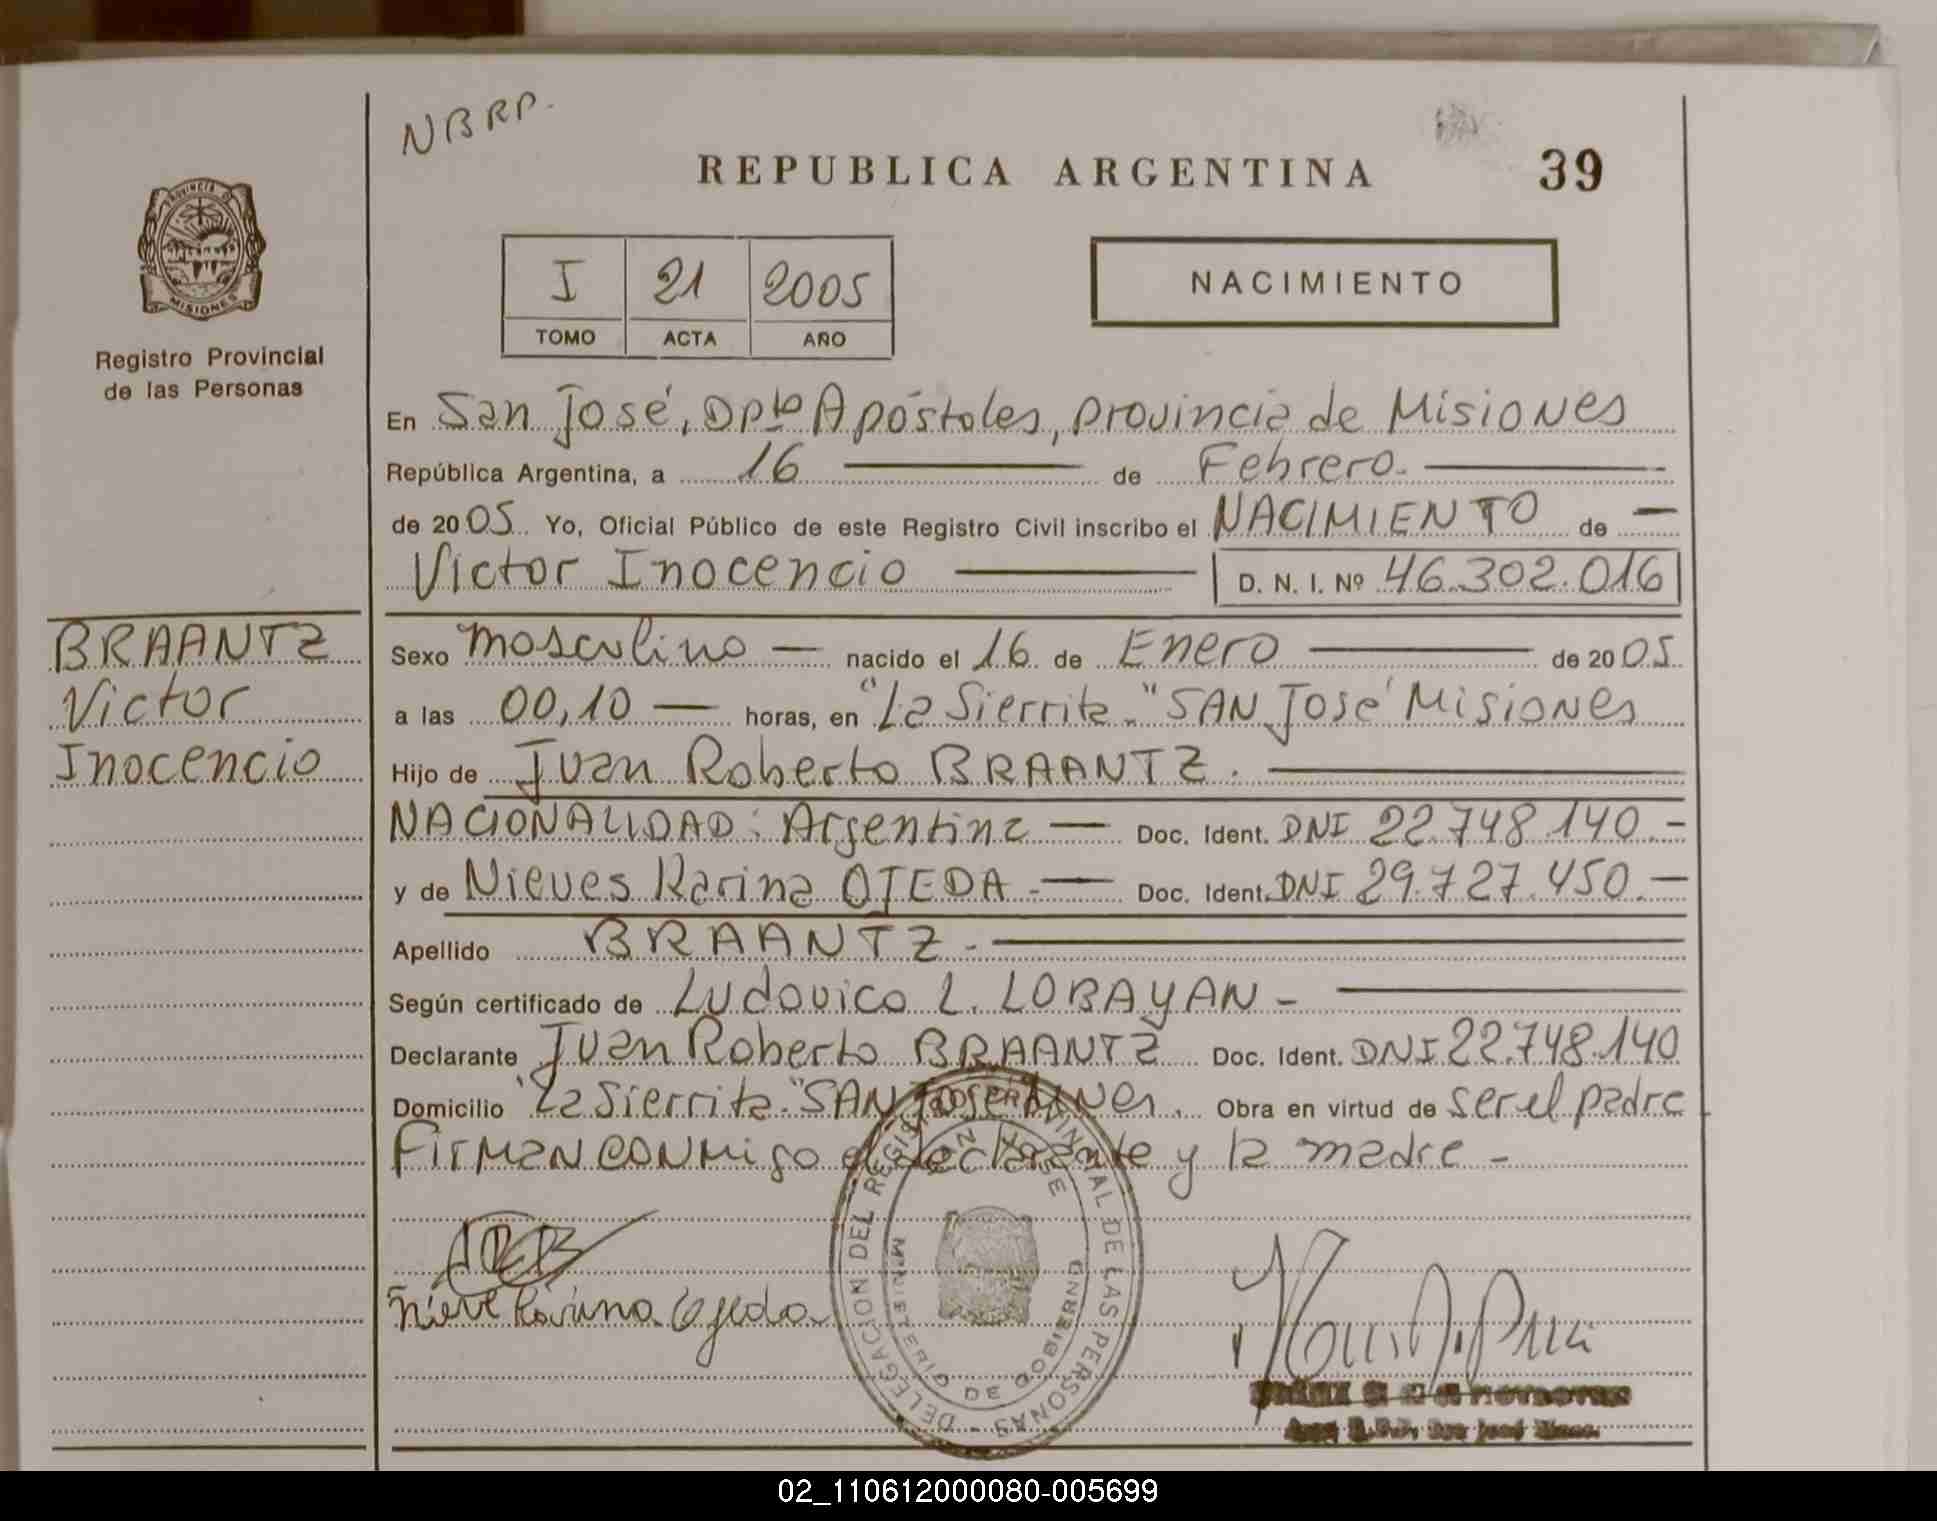 NBRP.
REPUBLICA ARGENTINA
39
PROVINCIA DE
MISIONES
Registro Provincial
de las Personas
I 21 2005
TOMO ACTA AÑO
NACIMIENTO
En San José, Dpto Apóstoles, provincia de Misiones
República Argentina, a 16 de Febrero.
de 2005 Yo, Oficial Público de este Registro Civil inscribo el NACIMIENTO de
Victor Inocencio D. N. I. Nº 46.302.016
BRAANTZ
Victor
Inocencio
Sexo masculino nacido el 16 de Enero de 2005
a las 00,10 horas, en "La Sierrita" SAN José Misiones
Hijo de Juan Roberto BRAANTZ.
NACIONALIDAD: Argentina Doc. Ident. DNI 22.748.140.-
y de Nieves Karina OJEDA.- Doc. Ident. DNI 29.727.450.-
Apellido BRAANTZ-
Según certificado de Ludovico L. LOBAYAN-
Declarante Juan Roberto BRAANTZ Doc. Ident. DNI 22.748.140
Domicilio "La Sierrita" SAN José Mnes. Obra en virtud de ser el padre
Firman conmigo el declarante y la madre-
DELEGACION DEL REGISTRO PROVINCIAL DE LAS PERSONAS -
SAN JOSE
MINISTERIO DE GOBIERNO
Nieve Karina Ojeda
02_110612000080-005699